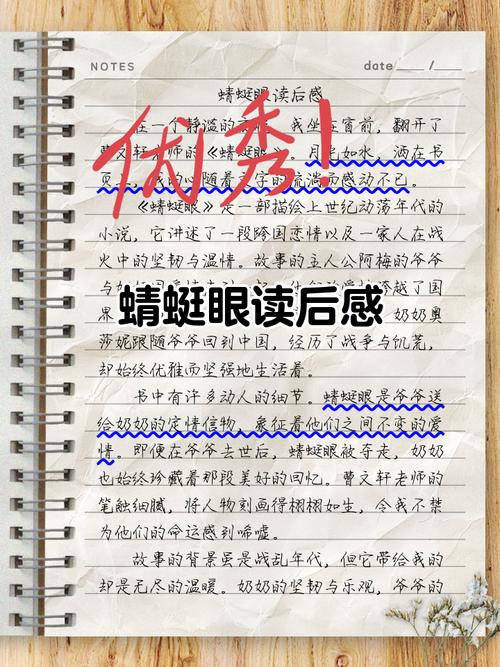 NOTES
date ____ / ____
蜻蜓眼读后感
在一个静谧的 我坐在窗前，翻开了
曹文轩老师的《蜻蜓眼》 月光如水，洒在书
页上，我的心随着文字的流淌而感动不已。
优秀！
《蜻蜓眼》是一部描绘上世纪动荡年代的
小说，它讲述了一段跨国恋情以及一家人在战
火中的坚韧与温情。故事的主人公阿梅的爷爷
与奶奶 越了国
蜻蜓眼读后感
果 奶奶奥
莎妮跟随爷爷回到中国，经历了战争与饥荒，
却始终优雅而坚强地生活着。
书中有许多动人的细节。蜻蜓眼是爷爷送
给奶奶的定情信物，象征着他们之间不变的爱
情。即便在爷爷去世后，蜻蜓眼被夺走，奶奶
也始终珍藏着那段美好的回忆。曹文轩老师的
笔触细腻，将人物刻画得栩栩如生，令我不禁
为他们的命运感到唏嘘。
故事的背景虽是战乱年代，但它带给我的
却是无尽的温暖。奶奶的坚韧与乐观，爷爷的